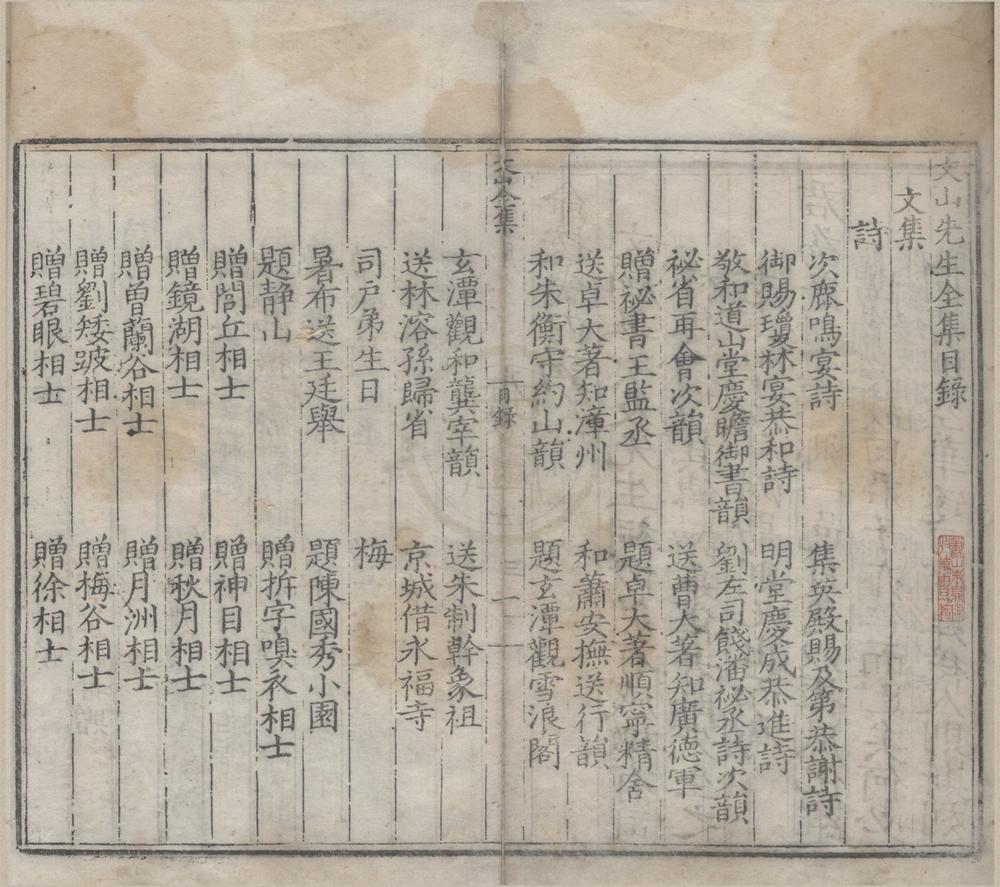 文山先生全集目錄
文集
詩
次鹿鳴宴詩　集英殿賜及第恭謝詩
御賜瓊林宴恭和詩　明堂慶成恭進詩
敬和道山堂慶瞻御書韻　劉左司餞潘秘丞詩次韻
祕省再會次韻　送曹大著知廣德軍
贈祕書王監丞　題卓大著順寧精舍
送卓大著知漳州　和蕭安撫送行韻
和朱衡守約山韻　題玄潭觀雪浪閣
文山全集　目錄　一
玄潭觀和龔宰韻　送朱制幹象祖
送林溶孫歸省　京城借永福寺
司戶弟生日　梅
暑布送王廷舉　題陳國秀小園
題靜山　贈拆字嗅衣相士
贈閭丘相士　贈神目相士
贈鏡湖相士　贈秋月相士
贈曾蘭谷相士　贈月洲相士
贈劉矮跛相士　贈梅谷相士
贈碧眼相士　贈徐相士